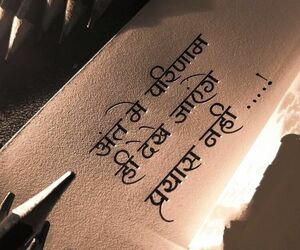 अंत मे परिणाम
ही देखे जाएंगे
प्रयास नही ....!